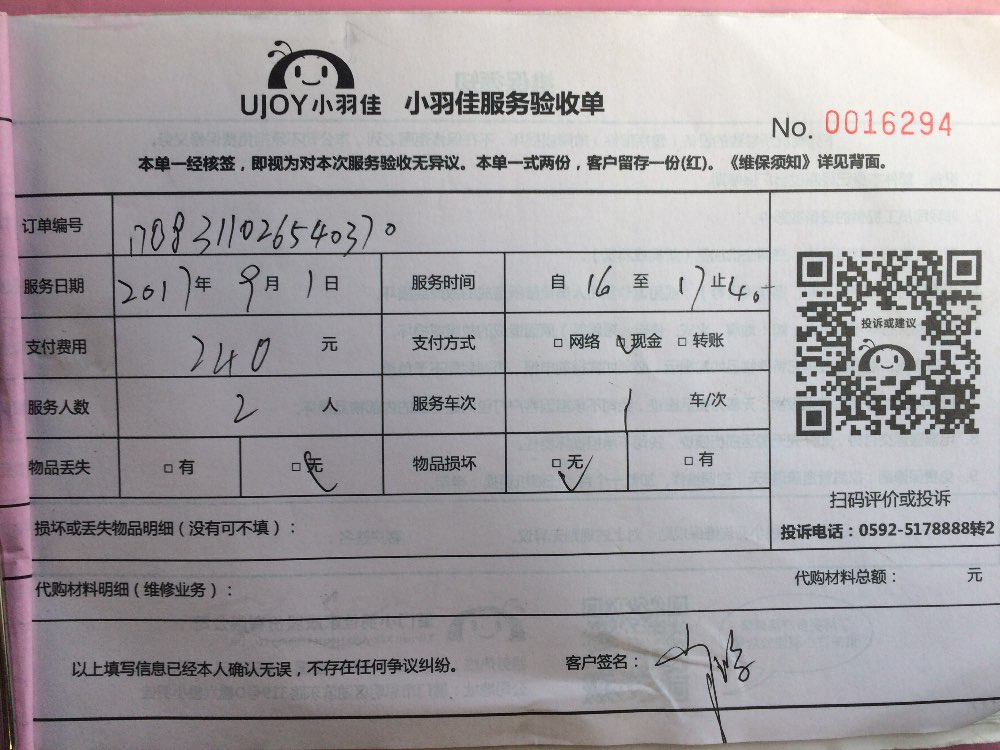 UJOY小羽佳 小羽佳服务验收单
No. 0016294
本单一经核签，即视为对本次服务验收无异议。本单一式两份，客户留存一份(红)。《维保须知》详见背面。
订单编号 1708311026540370
服务日期 2017年 9月 1日 服务时间 自 16 至 17止40
支付费用 240 元 支付方式 □ 网络 □ 现金 □ 转账
投诉或建议
服务人数 2 人 服务车次 1 车/次
物品丢失 □ 有 □ 无 物品损坏 □ 无 □ 有
扫码评价或投诉
损坏或丢失物品明细（没有可不填）：
投诉电话：0592-5178888转2
代购材料明细（维修业务）：
代购材料总额： 元
以上填写信息已经本人确认无误，不存在任何争议纠纷。
客户签名：